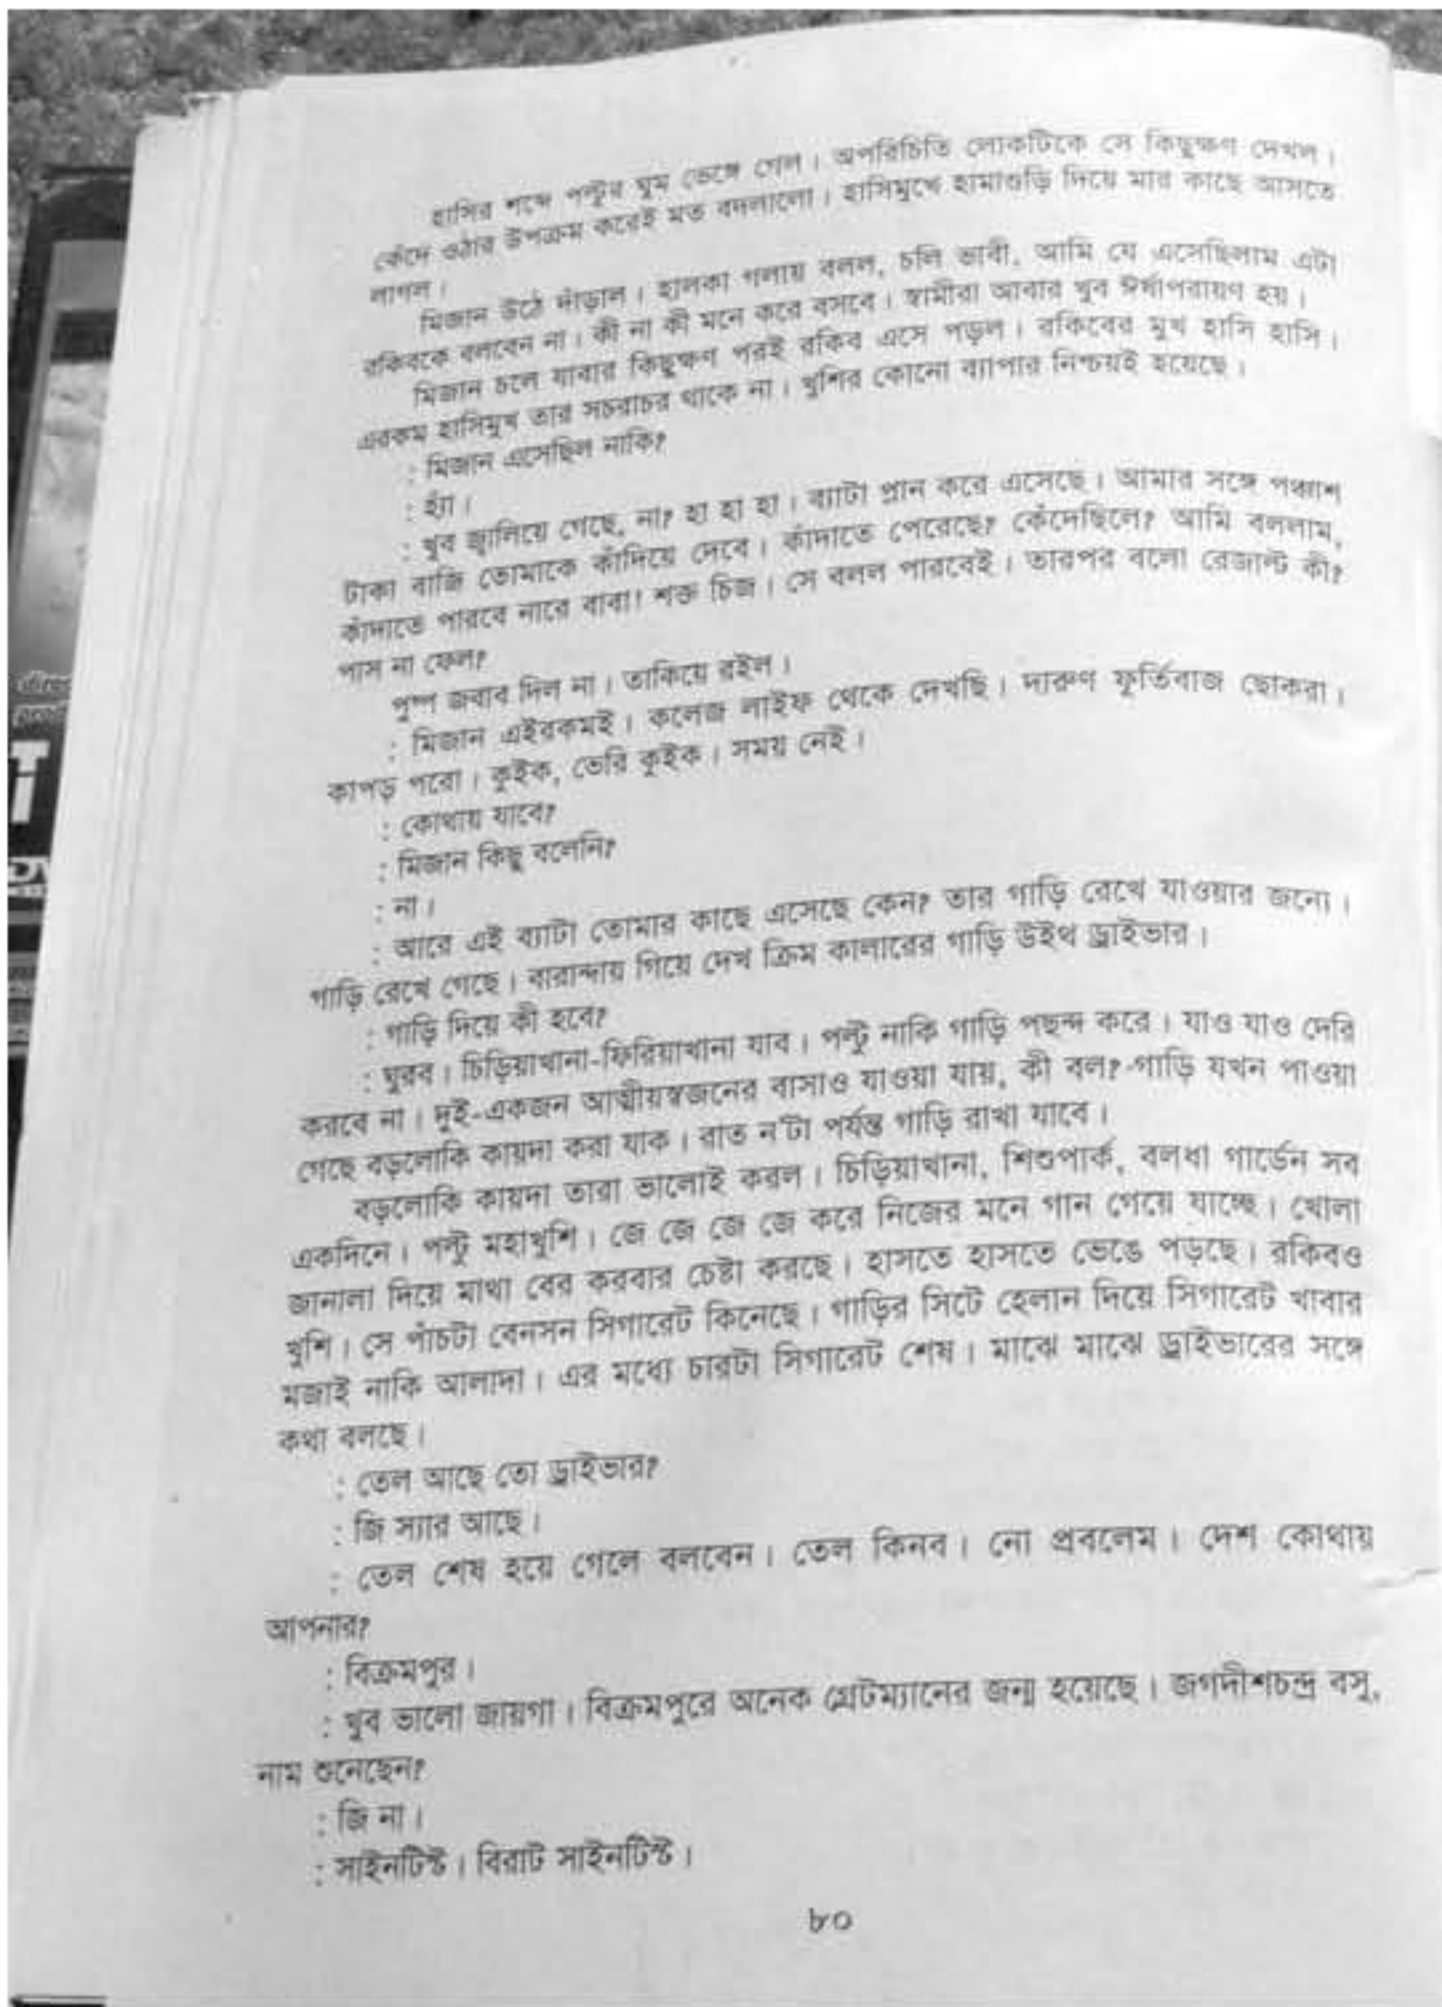 হাসির শব্দে পল্টুর ঘুম ভেঙ্গে গেল। অপরিচিতি লোকটিকে সে কিছুক্ষণ দেখল।
কেঁদে ওঠার উপক্রম করেই মত বদলালো। হাসিমুখে হামাগুড়ি দিয়ে মার কাছে আসতে
লাগল।
মিজান উঠে দাঁড়াল। হালকা গলায় বলল, চলি ভাবী, আমি যে এসেছিলাম এটা
রকিবকে বলবেন না। কী না কী মনে করে বসবে। স্বামীরা আবার খুব ঈর্ষাপরায়ণ হয়।
মিজান চলে যাবার কিছুক্ষণ পরই রকিব এসে পড়ল। রকিবের মুখ হাসি হাসি।
এরকম হাসিমুখ তার সচরাচর থাকে না। খুশির কোনো ব্যাপার নিশ্চয়ই হয়েছে।
: মিজান এসেছিল নাকি?
: হ্যাঁ।
: খুব জ্বালিয়ে গেছে, না? হা হা হা। ব্যাটা প্লান করে এসেছে। আমার সঙ্গে পঞ্চাশ
টাকা বাজি তোমাকে কাঁদিয়ে দেবে। কাঁদাতে পেরেছে? কেঁদেছিলে? আমি বললাম,
কাঁদাতে পারবে নারে বাবা! শক্ত চিজ। সে বলল পারবেই। তারপর বলো রেজাল্ট কী?
পাস না ফেল?
পুষ্প জবাব দিল না। তাকিয়ে রইল।
: মিজান এইরকমই। কলেজ লাইফ থেকে দেখছি। দারুণ ফূর্তিবাজ ছোকরা।
কাপড় পরো। কুইক, ভেরি কুইক। সময় নেই।
: কোথায় যাবে?
: মিজান কিছু বলেনি?
: না।
: আরে এই ব্যাটা তোমার কাছে এসেছে কেন? তার গাড়ি রেখে যাওয়ার জন্যে।
গাড়ি রেখে গেছে। বারান্দায় গিয়ে দেখ ক্রিম কালারের গাড়ি উইথ ড্রাইভার।
: গাড়ি দিয়ে কী হবে?
: ঘুরব। চিড়িয়াখানা-ফিরিয়াখানা যাব। পল্টু নাকি গাড়ি পছন্দ করে। যাও যাও দেরি
করবে না। দুই-একজন আত্মীয়স্বজনের বাসাও যাওয়া যায়, কী বল?-গাড়ি যখন পাওয়া
গেছে বড়লোকি কায়দা করা যাক। রাত ন'টা পর্যন্ত গাড়ি রাখা যাবে।
বড়লোকি কায়দা তারা ভালোই করল। চিড়িয়াখানা, শিশুপার্ক, বলধা গার্ডেন সব
একদিনে। পল্টু মহাখুশি। জে জে জে জে করে নিজের মনে গান গেয়ে যাচ্ছে। খোলা
জানালা দিয়ে মাথা বের করবার চেষ্টা করছে। হাসতে হাসতে ভেঙে পড়ছে। রকিবও
খুশি। সে পাঁচটা বেনসন সিগারেট কিনেছে। গাড়ির সিটে হেলান দিয়ে সিগারেট খাবার
মজাই নাকি আলাদা। এর মধ্যে চারটা সিগারেট শেষ। মাঝে মাঝে ড্রাইভারের সঙ্গে
কথা বলছে।
: তেল আছে তো ড্রাইভার?
: জি স্যার আছে।
: তেল শেষ হয়ে গেলে বলবেন। তেল কিনব। নো প্রবলেম। দেশ কোথায়
আপনার?
: বিক্রমপুর।
: খুব ভালো জায়গা। বিক্রমপুরে অনেক গ্রেটম্যানের জন্ম হয়েছে। জগদীশচন্দ্র বসু,
নাম শুনেছেন?
: জি না।
: সাইনটিস্ট। বিরাট সাইনটিস্ট।
৮০